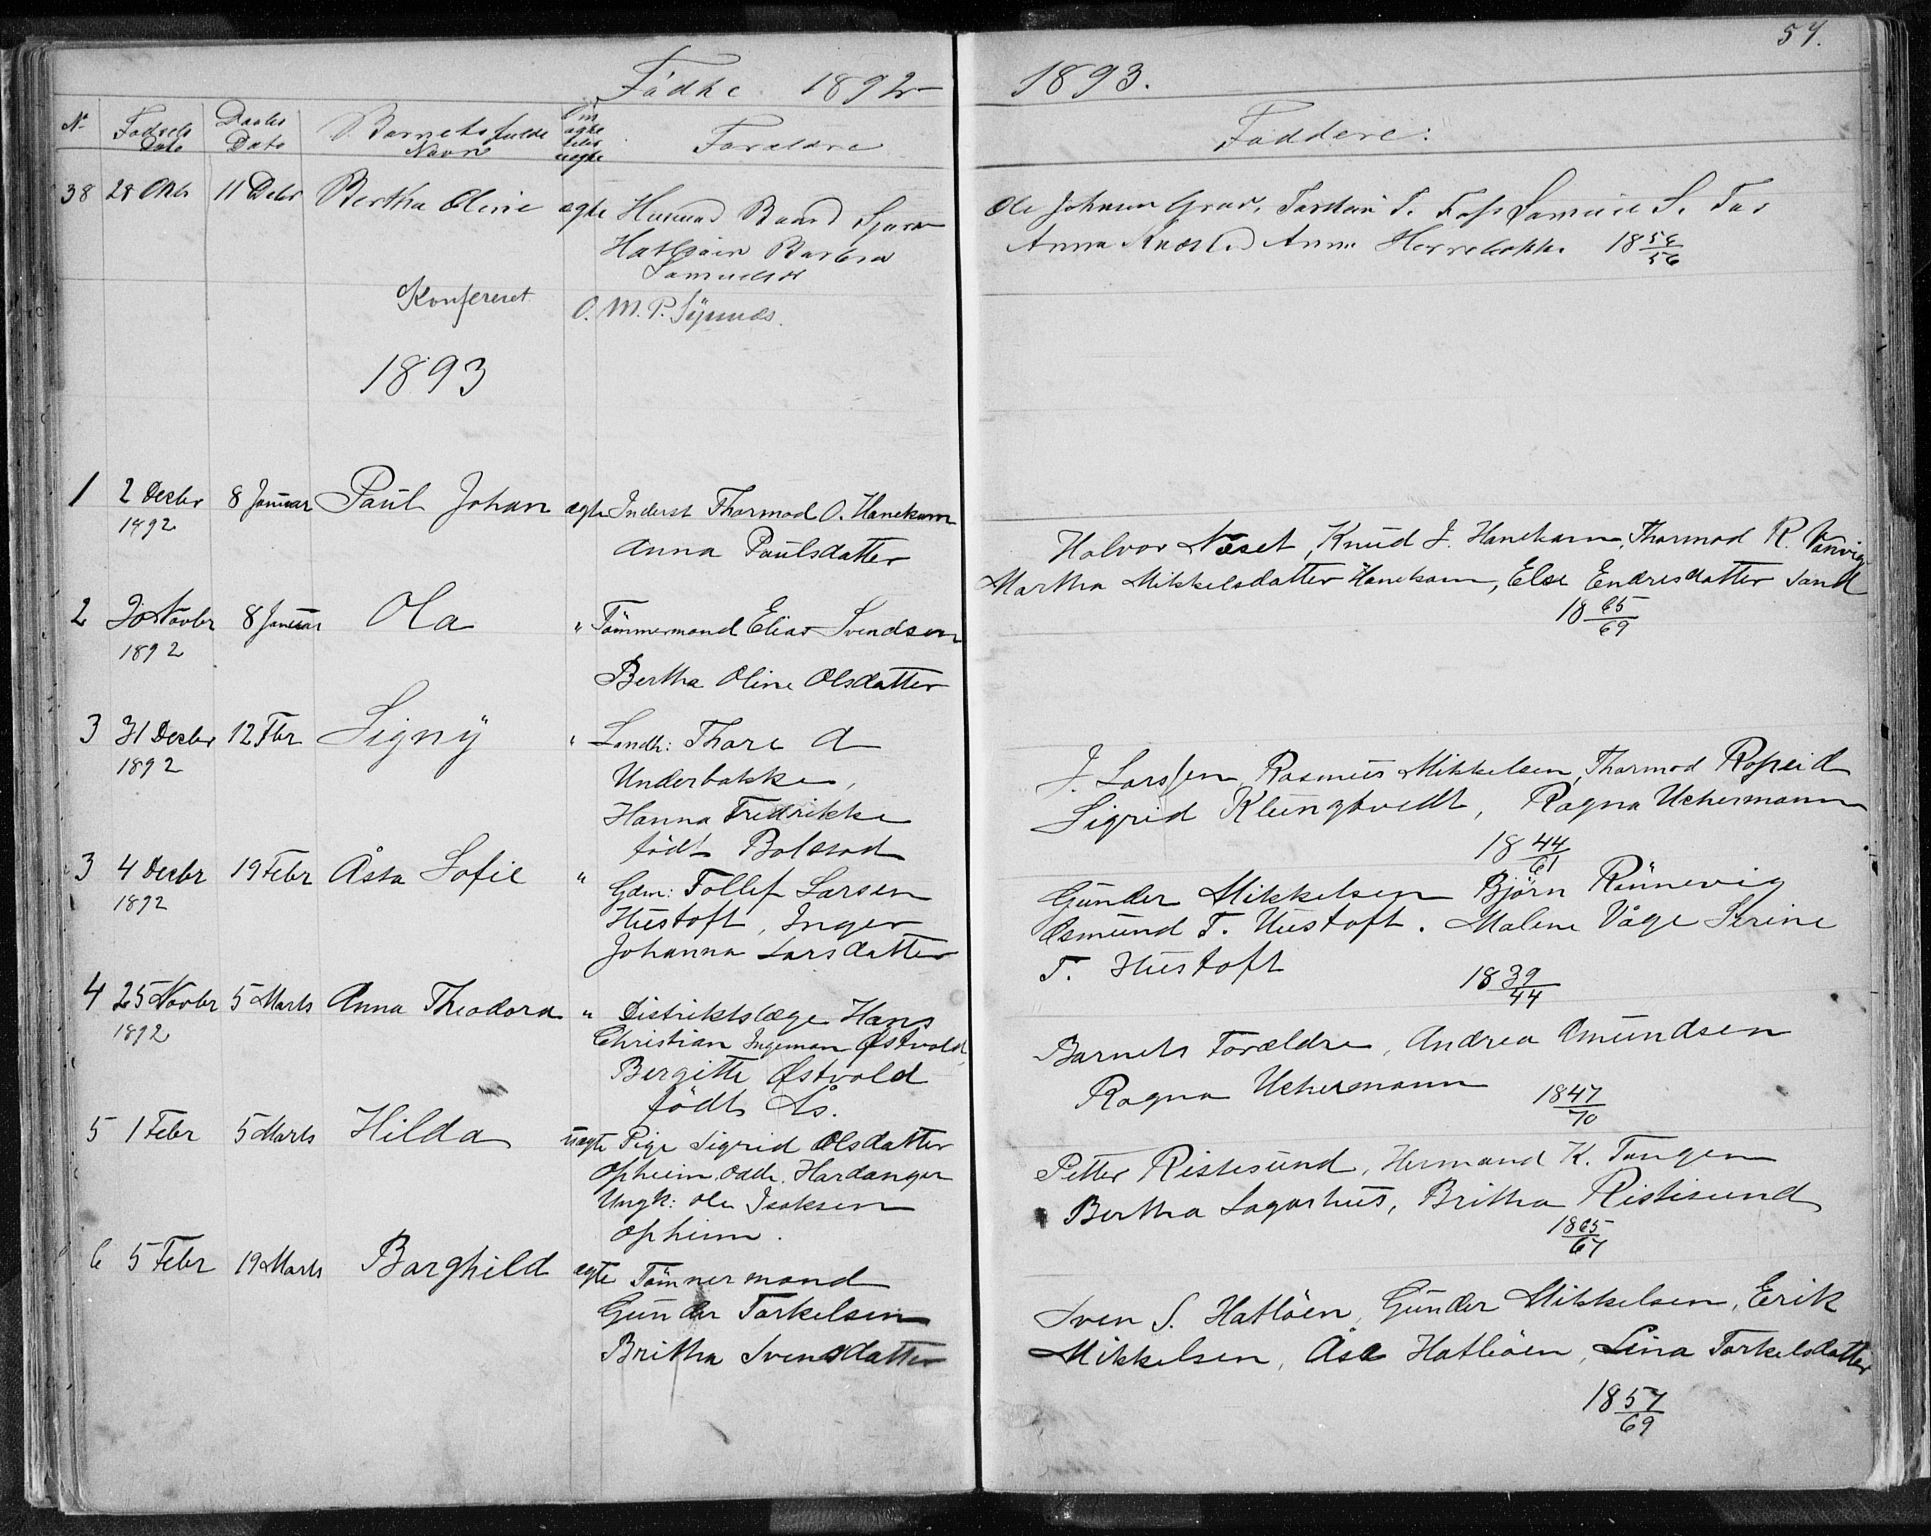 57.
Fødte 1892
1893.
Nº Fødsels Date Daabs Date Barnets fulde Navn Om ægte eller uægte Forældre
Faddere:
38 28 Oktr 11 Debr Bertha Oline ægte Husmd Baard
Hatløien Barbra
Samuelsdr
Ole Johnsen Torstein T. S.
Anna Anna Herrebakke 18
56
Konfereret
O. M. P. Synnæs.
1893
1 2 Decbr 8 Januar Paul Johan ægte Inderst Thormod O. Hanekam
1892
Anna Paulsdatter
Halvor Næset, Knud J. Hanekam, Thormod R.
Martha Mikkelsdatter Hanekam, Else Endresdatter Sand
18 65
69
2 30 Novbr 8 Januar Ola " Tømmermand Elias Svendsen
1892
Bertha Oline Olsdatter
3 31 Decbr 12 Fbr Signy " Landh: Thore A
1892
Underbakke,
Hanna Fredrikke
født Bolstad
J. Larssen, Rasmus Mikkelsen, Thormod Ropeid
Sigrid Klungtvedt, Ragna Uchermann
18 44
61
3 4 Decbr 19 Febr Åsta Sofie " Gdm: Tollef Larsen
1892
Hustoft, Inger
Johanna Larsdatter
Gunder Mikkelsen Bjørn Rønnevig
Osmund T. Hustoft. Malene Våge Serine
T. Hustoft
18 39
44
4 25 Novbr 5 Marts Anna Theodora " Distriktslæge Hans
1892
Christian Ingeman Østvold,
Bergitte Østvold
født Ås.
Barnets Forældre, Andrea Omundsen
Ragna Uchermann
18 47
70
5 1 Febr 5 Marts Hilda uægte Pige Sigrid Olsdatter
Opheim, Odde, Hardanger
Ungk: Ole Isaksen
Opheim.
Petter Ristesund, Hermand K. Tangen
Bertha Lagarhus, Britha Ristesund
18 65
67
6 5 Febr 19 Marts Borghild ægte Tømmermand
Gunder Torkelsen
Britha Svensdatter
Sven S. Hatløen, Gunder Mikkelsen, Erik
Mikkelsen, Åsa Hatløen, Lina Torkelsdatter
18 57
69